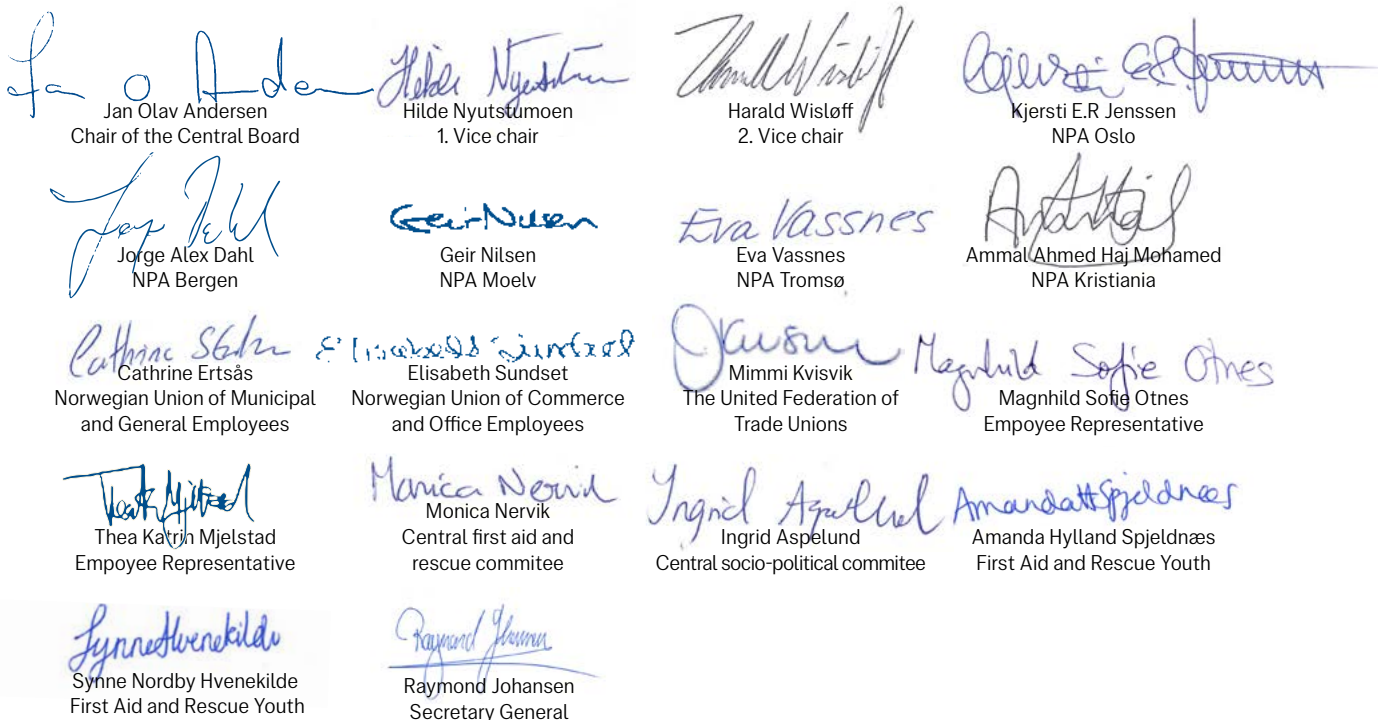 Jan O Ander
Hilde Nyutstumoen
Jan Olav Andersen
Chair of the Central Board
Hilde Nyutstumoen
1. Vice chair
Harald Wisløff
2. Vice chair
Kjersti E.R Jenssen
NPA Oslo
Geir Nilsen
Eva Vassnes
Jorge Alex Dahl
NPA Bergen
Geir Nilsen
NPA Moelv
Eva Vassnes
NPA Tromsø
Ammal Ahmed Haj Mohamed
NPA Kristiania
Magnhild Sofie Otnes
Cathrine Ertsås
Norwegian Union of Municipal
and General Employees
Elisabeth Sundset
Norwegian Union of Commerce
and Office Employees
Mimmi Kvisvik
The United Federation of
Trade Unions
Magnhild Sofie Otnes
Empoyee Representative
Monica Nervik
Ingrid Aspelund
Amanda H Spjeldnæs
Thea Katrin Mjelstad
Empoyee Representative
Monica Nervik
Central first aid and
rescue commitee
Ingrid Aspelund
Central socio-political commitee
Amanda Hylland Spjeldnæs
First Aid and Rescue Youth
Synne Hvenekilde
Synne Nordby Hvenekilde
First Aid and Rescue Youth
Raymond Johansen
Secretary General